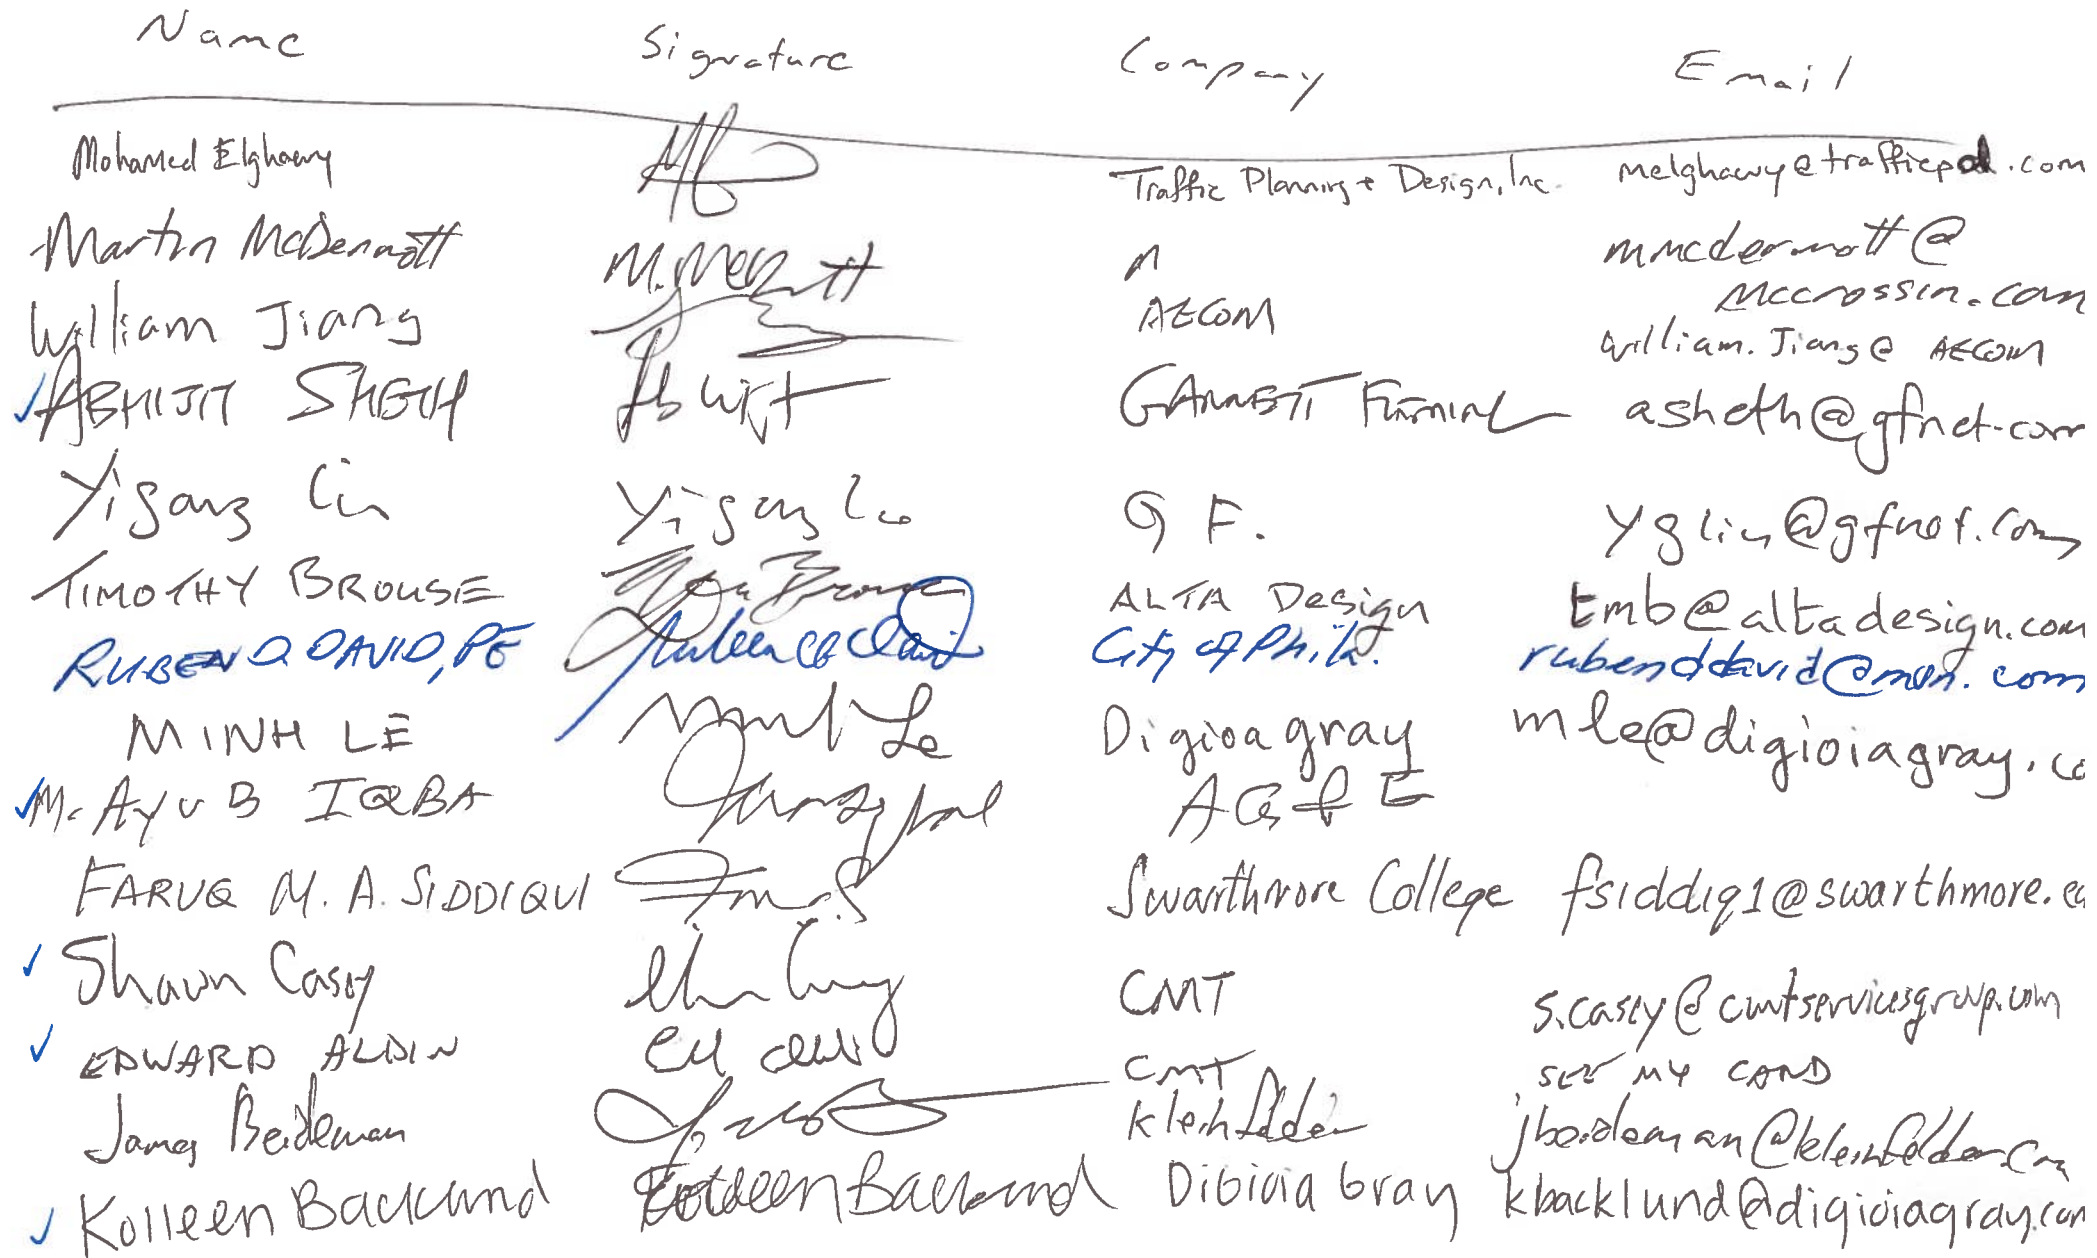 Name Signature Company Email
Mohamed Elghawy Traffic Planning + Design, Inc. melghawy@trafficpd.com
Martin McDermott M. McDermott mmcdermott@
mccrossin.com
William Jiang AECOM william.Jiang@ AECOM
ABHIJIT SHETH GANNETT FLEMING asheth@gfnet.com
Yigang Lin Yigang Lin G F. yglin@gfnet.com
TIMOTHY BROUSE Tim Brouse ALTA Design tmb@altadesign.com
RUBEN D DAVID, PE Ruben D David City of Phila. rubenddavid@msn.com
MINH LE Minh Le Digioa gray mle@digioiagray.co
M. AYUB IQBA AG&E
FARUQ M. A. SIDDIQUI Swarthmore College fsiddiq1@swarthmore.ed
Shawn Casey CMT s.casey@cmtservicesgroup.com
EDWARD ALDIN CMT SEE MY CARD
James Beideman Kleinfelder jbeideman@kleinfelder.com
Kolleen Backlund Kolleen Backlund Digioia Gray kbacklund@digioiagray.com